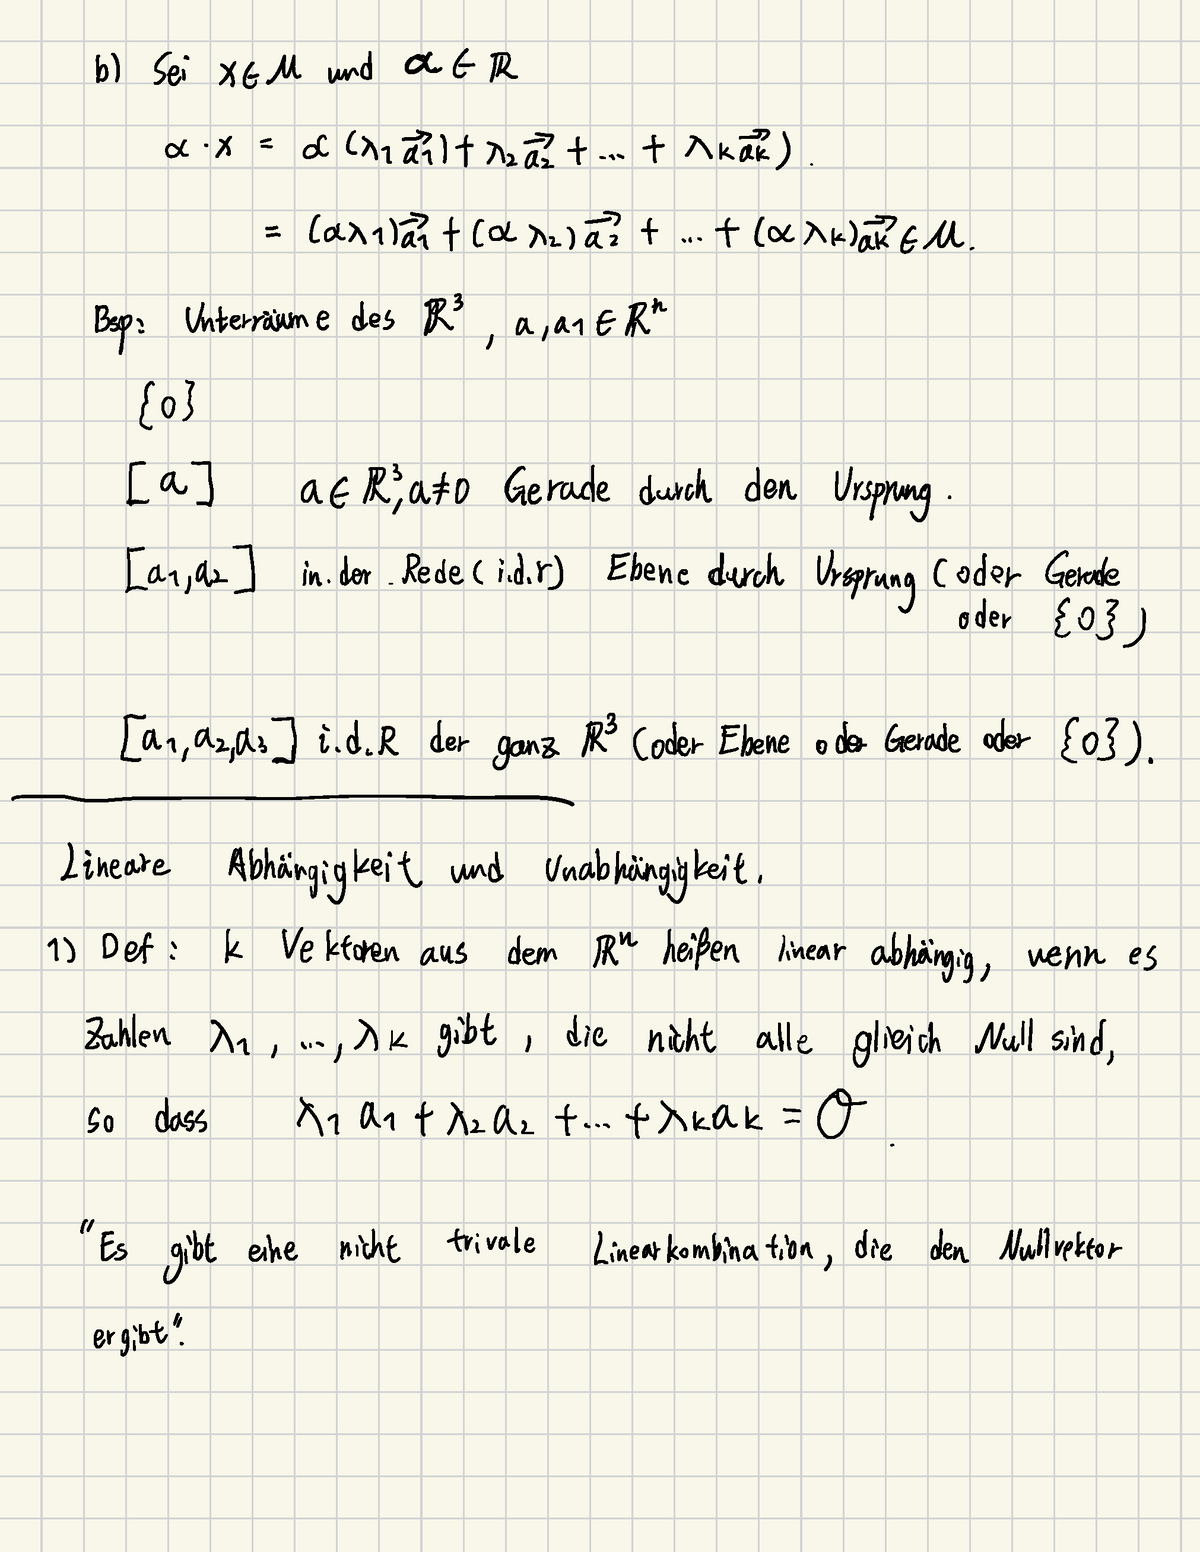 b) Sei x ∈ M und α ∈ ℝ
α · x = α (λ1 a⃗1) + λ2 a⃗2 + ... + λk a⃗k) .
= (αλ1) a⃗1 + (α λ2) a⃗2 + ... + (α λk) a⃗k ∈ M.
Bsp: Unterräume des ℝ³ , a, a1 ∈ ℝⁿ
{0}
[a] a ∈ ℝ³, a ≠ 0 Gerade durch den Ursprung .
[a1, a2] in. der . Rede ( i.d.r) Ebene durch Ursprung ( oder Gerade
oder {0} )
[a1, a2, a3] i.d.R der ganz ℝ³ (oder Ebene oder Gerade oder {0}).
Lineare Abhängigkeit und Unabhängigkeit.
1) Def : k Vektoren aus dem ℝⁿ heißen linear abhängig, wenn es
Zahlen λ1 , ..., λk gibt , die nicht alle glieich Null sind,
so dass λ1 a1 + λ2 a2 + ... + λk ak = O .
"Es gibt eine nicht trivale Linearkombination, die den Nullvektor
ergibt".